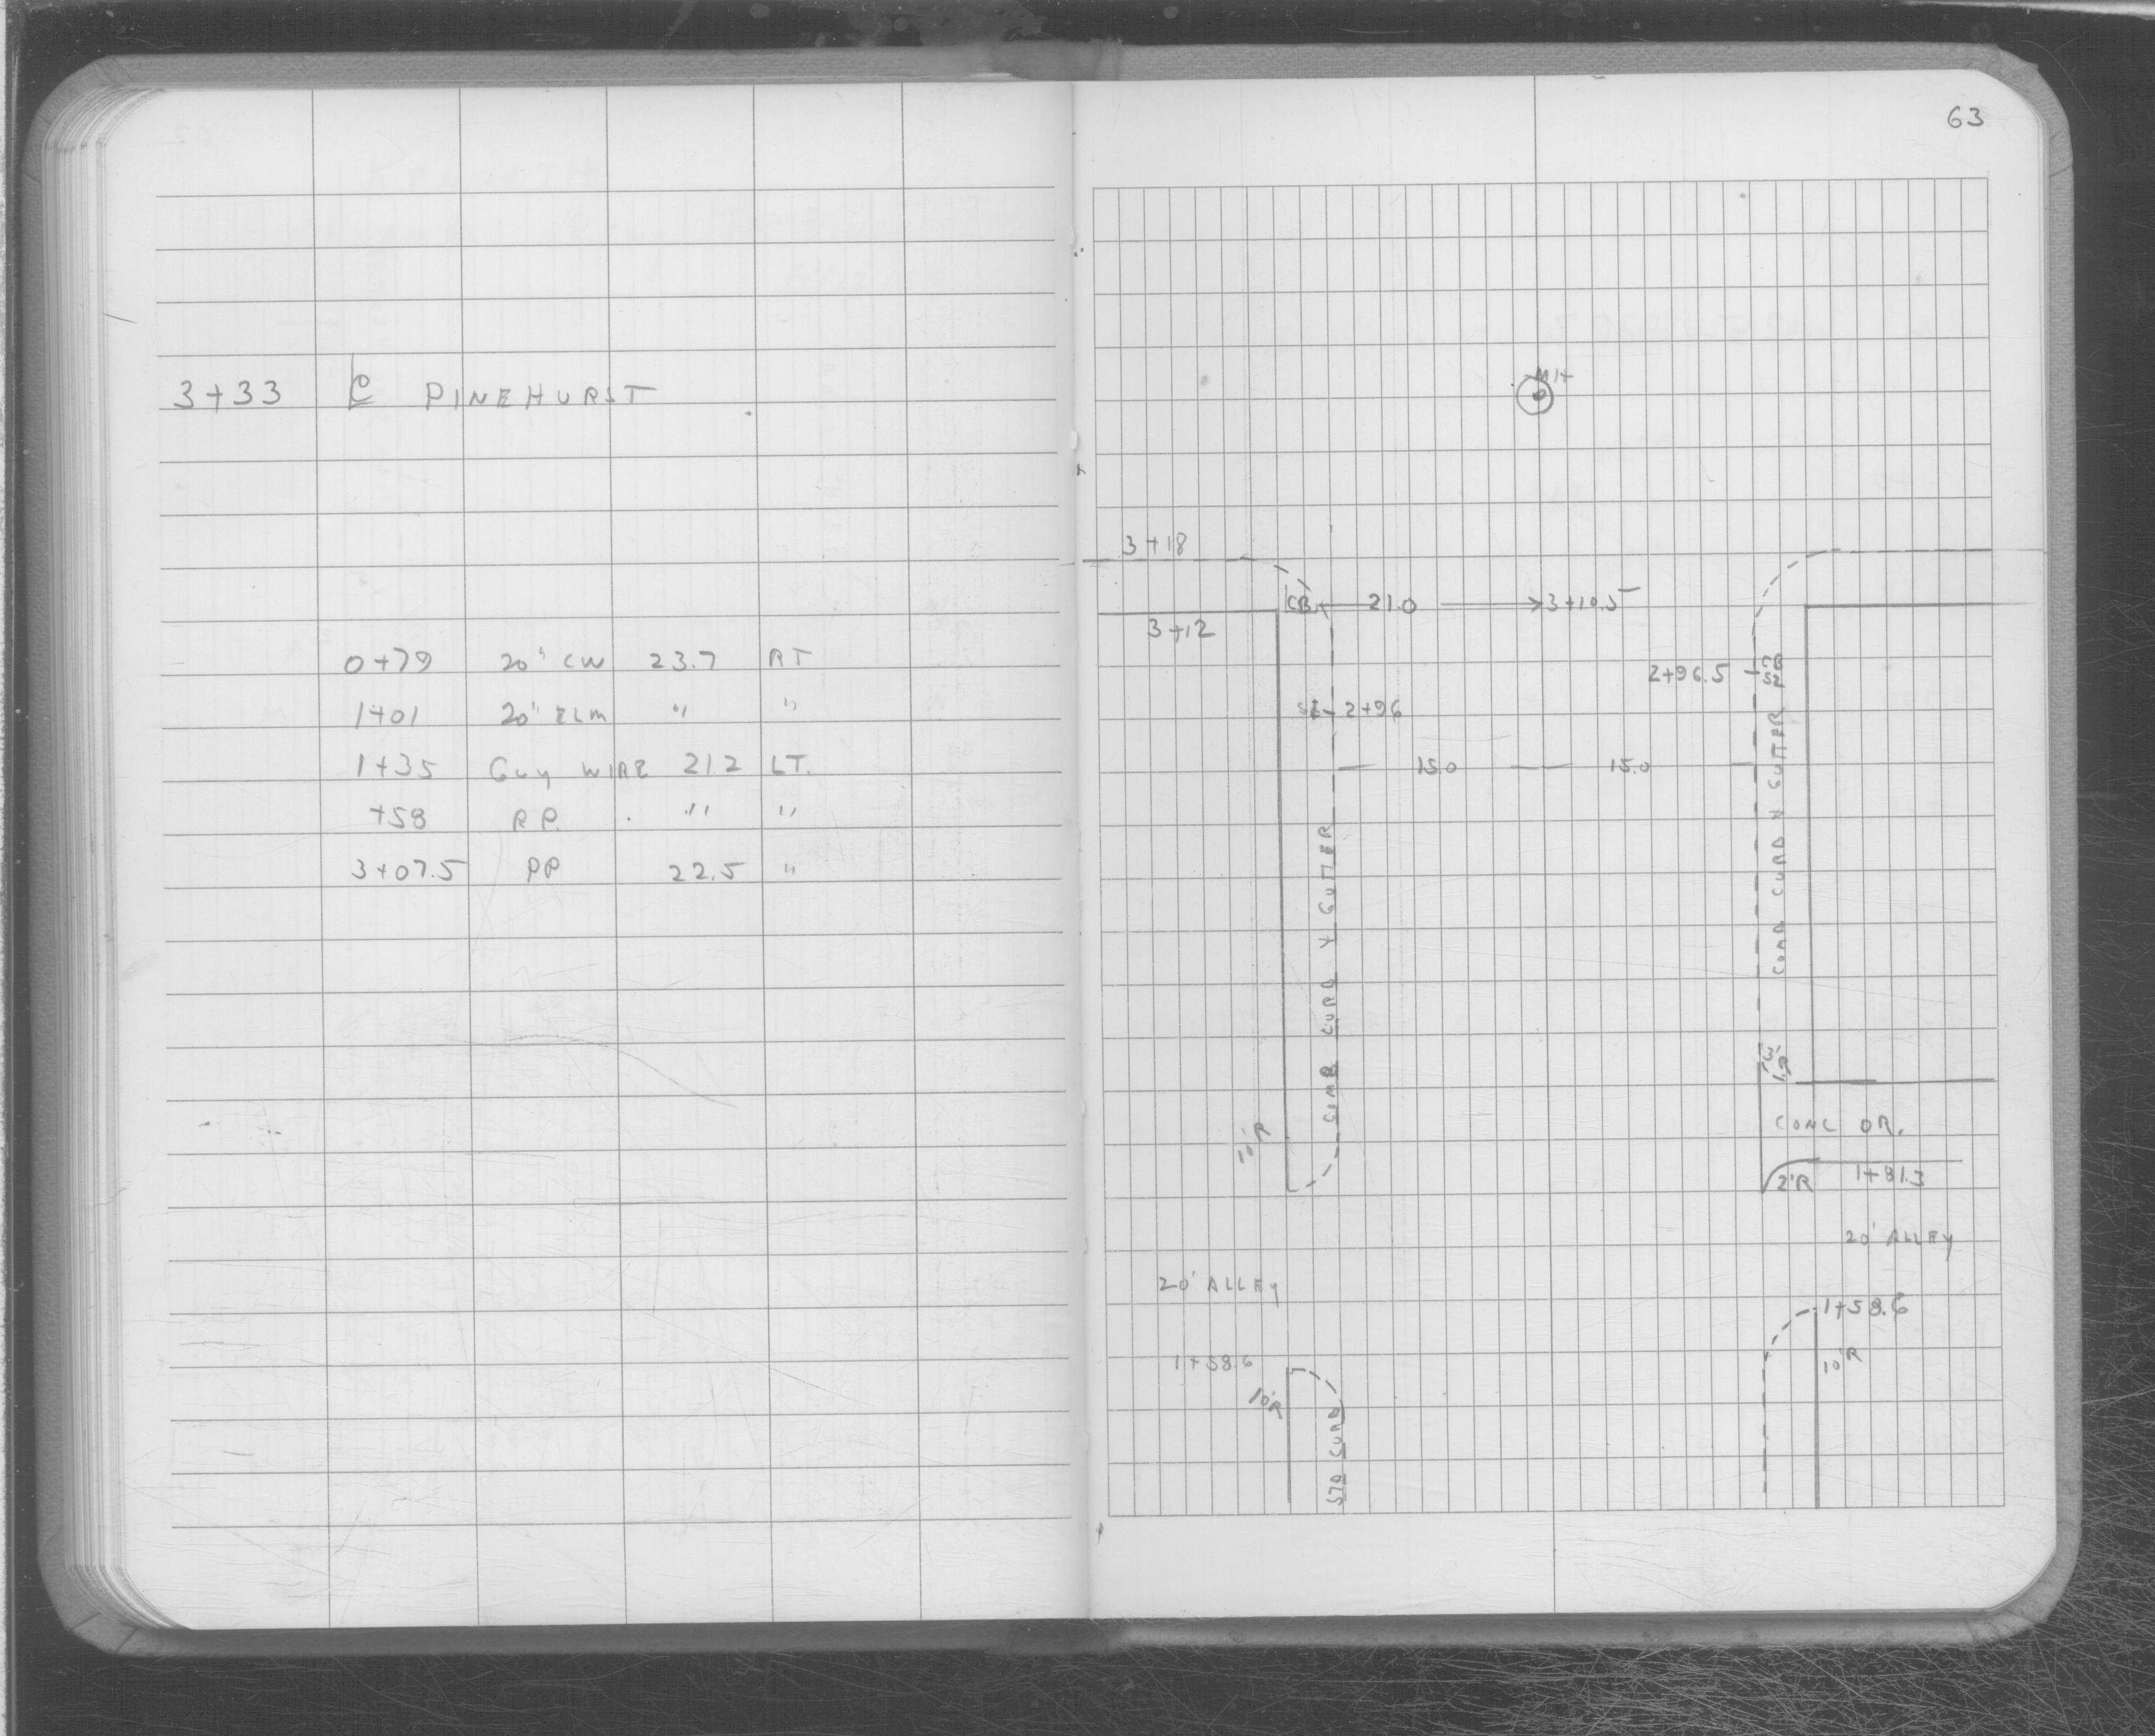 63
3+33 ℄ PINEHURST
0+79 20" CW 23.7 RT
1+01 20" ELM " "
1+35 Guy WIRE 21.2 LT.
+58 PP. " "
3+07.5 PP 22.5 "
MH
3+18
CB 21.0 3+10.5
3+12
2+96.5
2+96
15.0 15.0
COMB CURB & GUTTER
COMB CURB & GUTTER
3'R
CONC DR.
10'R
2'R 1+81.3
20' ALLEY
20' ALLEY
1+58.6
1+58.6
10'R
10'R
STD CURB